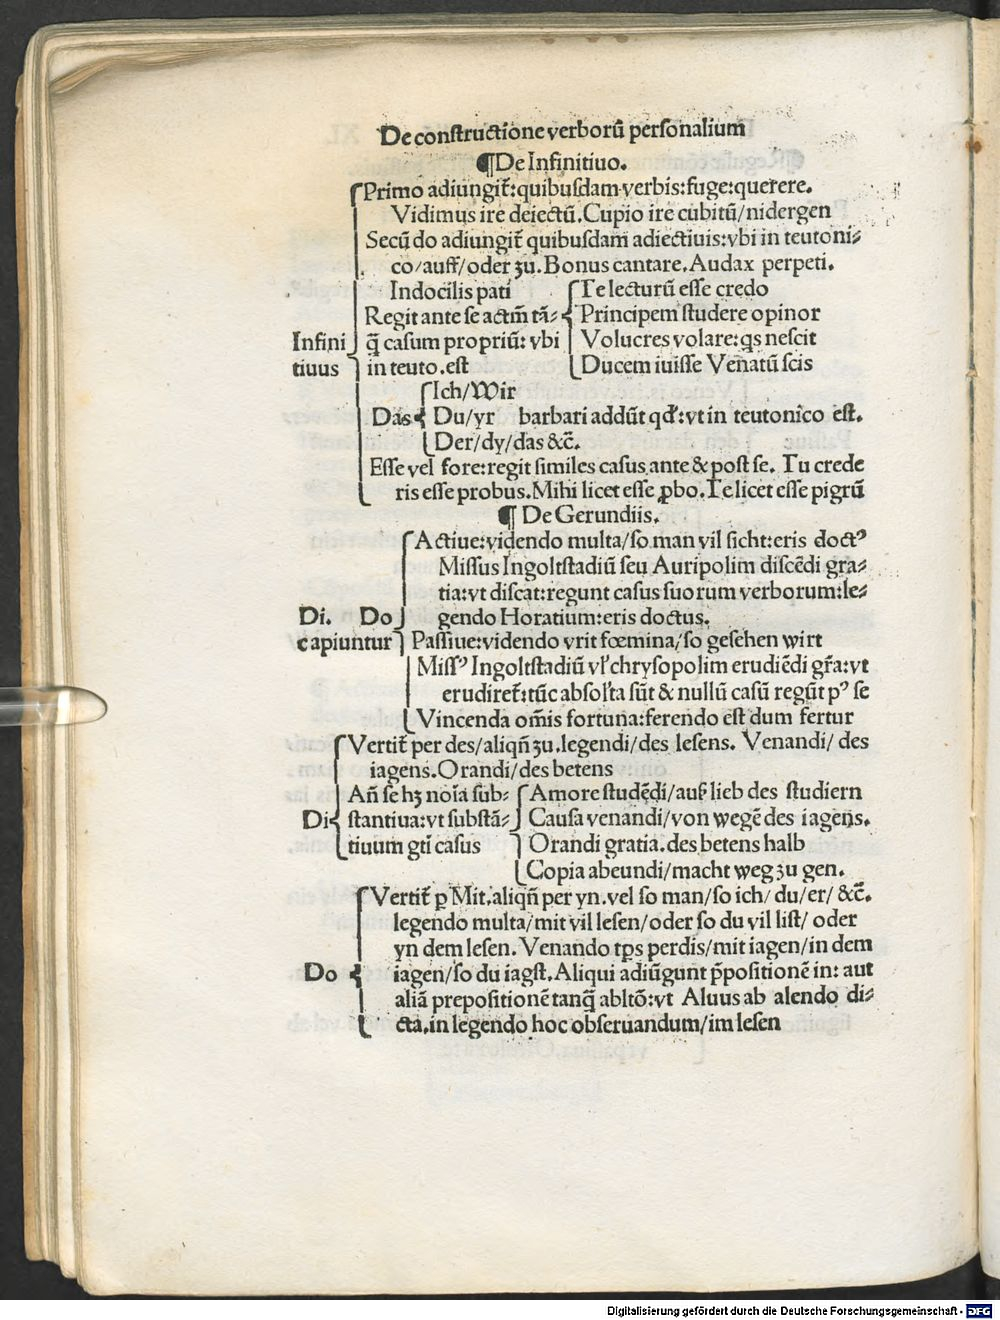 De constructione verborũ personalium
¶De Infinitiuo.
Primo adiungit̃:quibusdam verbis:fuge:querere.
Vidimus ire deiectũ.Cupio ire cubitũ/nidergen
Secũdo adiungit̃ quibusdam adiectiuis:vbi in teutoni⸗
co/auff/oder zu.Bonus cantare.Audax perpeti.
Indocilis pati
Regit ante se actiũ tã⸗
Infini
q̃ casum propriũ: vbi
tiuus
in teuto.est
Te lecturũ esse credo
Principem studere opinor
Volucres volare:qs nescit
Ducem iuisse Venatũ scis
Ich/Wir
Das Du/yr barbari addũt qđ:vt in teutonico est.
Der/dy/das &c̃.
Esse vel fore:regit similes casus ante & post se. Tu crede
ris esse probus.Mihi licet esse ꝓbo.Te licet esse pigrũ
¶ De Gerundiis.
Actiue:videndo multa/so man vil sicht:eris doctꝰ
Missus Ingoltstadiũ seu Auripolim discẽdi gra⸗
tia:vt discat:regunt casus suorum verborum:le⸗
Di. Do gendo Horatium:eris doctus.
capiuntur Passiue:videndo vrit fœmina/so gesehen wirt
Missꝰ Ingoltstadiũ vl̛ chrysopolim erudiẽdi gr̃a:vt
erudiret̃:tũc absol̛ta sũt & nullũ casũ regũt pꝰ se
Vincenda om̃is fortuna:ferendo est dum fertur
Vertit̃ per des/aliqñ zu.legendi/des lesens. Venandi/ des
iagens.Orandi/des betens
Añ se hꝫ noĩa sub⸗
Di stantiua:vt substã⸗
tiuum gti casus
Amore studẽdi/auß lieb des studiern
Causa venandi/von wegẽ des iagens.
Orandi gratia.des betens halb
Copia abeundi/macht weg zu gen.
Vertit̃ ꝑ Mit.aliqñ per yn.vel so man/so ich/ du/er/ &c̃.
legendo multa/mit vil lesen/oder so du vil list/ oder
yn dem lesen. Venando tꝑs perdis/mit iagen/in dem
Do iagen/so du iagst.Aliqui adiũgunt p̃positionẽ in: aut
aliã prepositionẽ tanq̃ abltõ:vt Aluus ab alendo di⸗
cta.in legendo hoc obseruandum/im lesen
Digitalisierung gefördert durch die Deutsche Forschungsgemeinschaft - DFG